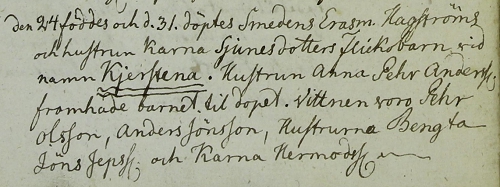 den 24 föddes och d. 31. döptes Smedens Erasm. Hagströms
och hustrun Karna Sjunesdotters Flickobarn, vid
namn Kjerstena. Hustrun Anna Pehr Anderss:
framhade barnet til dopet. Vittnen voro Pehr
Olsson, Anders Jönsson, Hustrurna Bengta
Jöns Jepss: och Karna Hermodss: